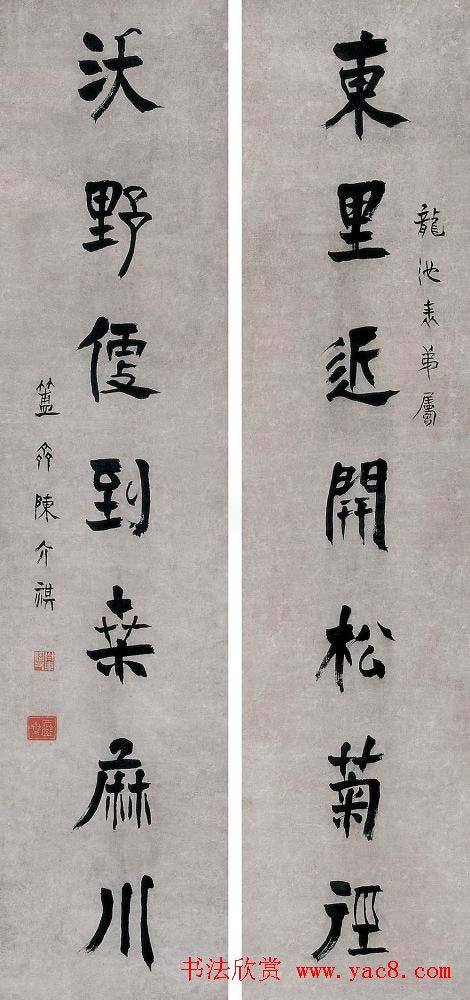 東里近開松菊徑
龍池表弟屬
沃野到桒麻川
簠齋陳介祺
书法欣赏 www.yac8.com